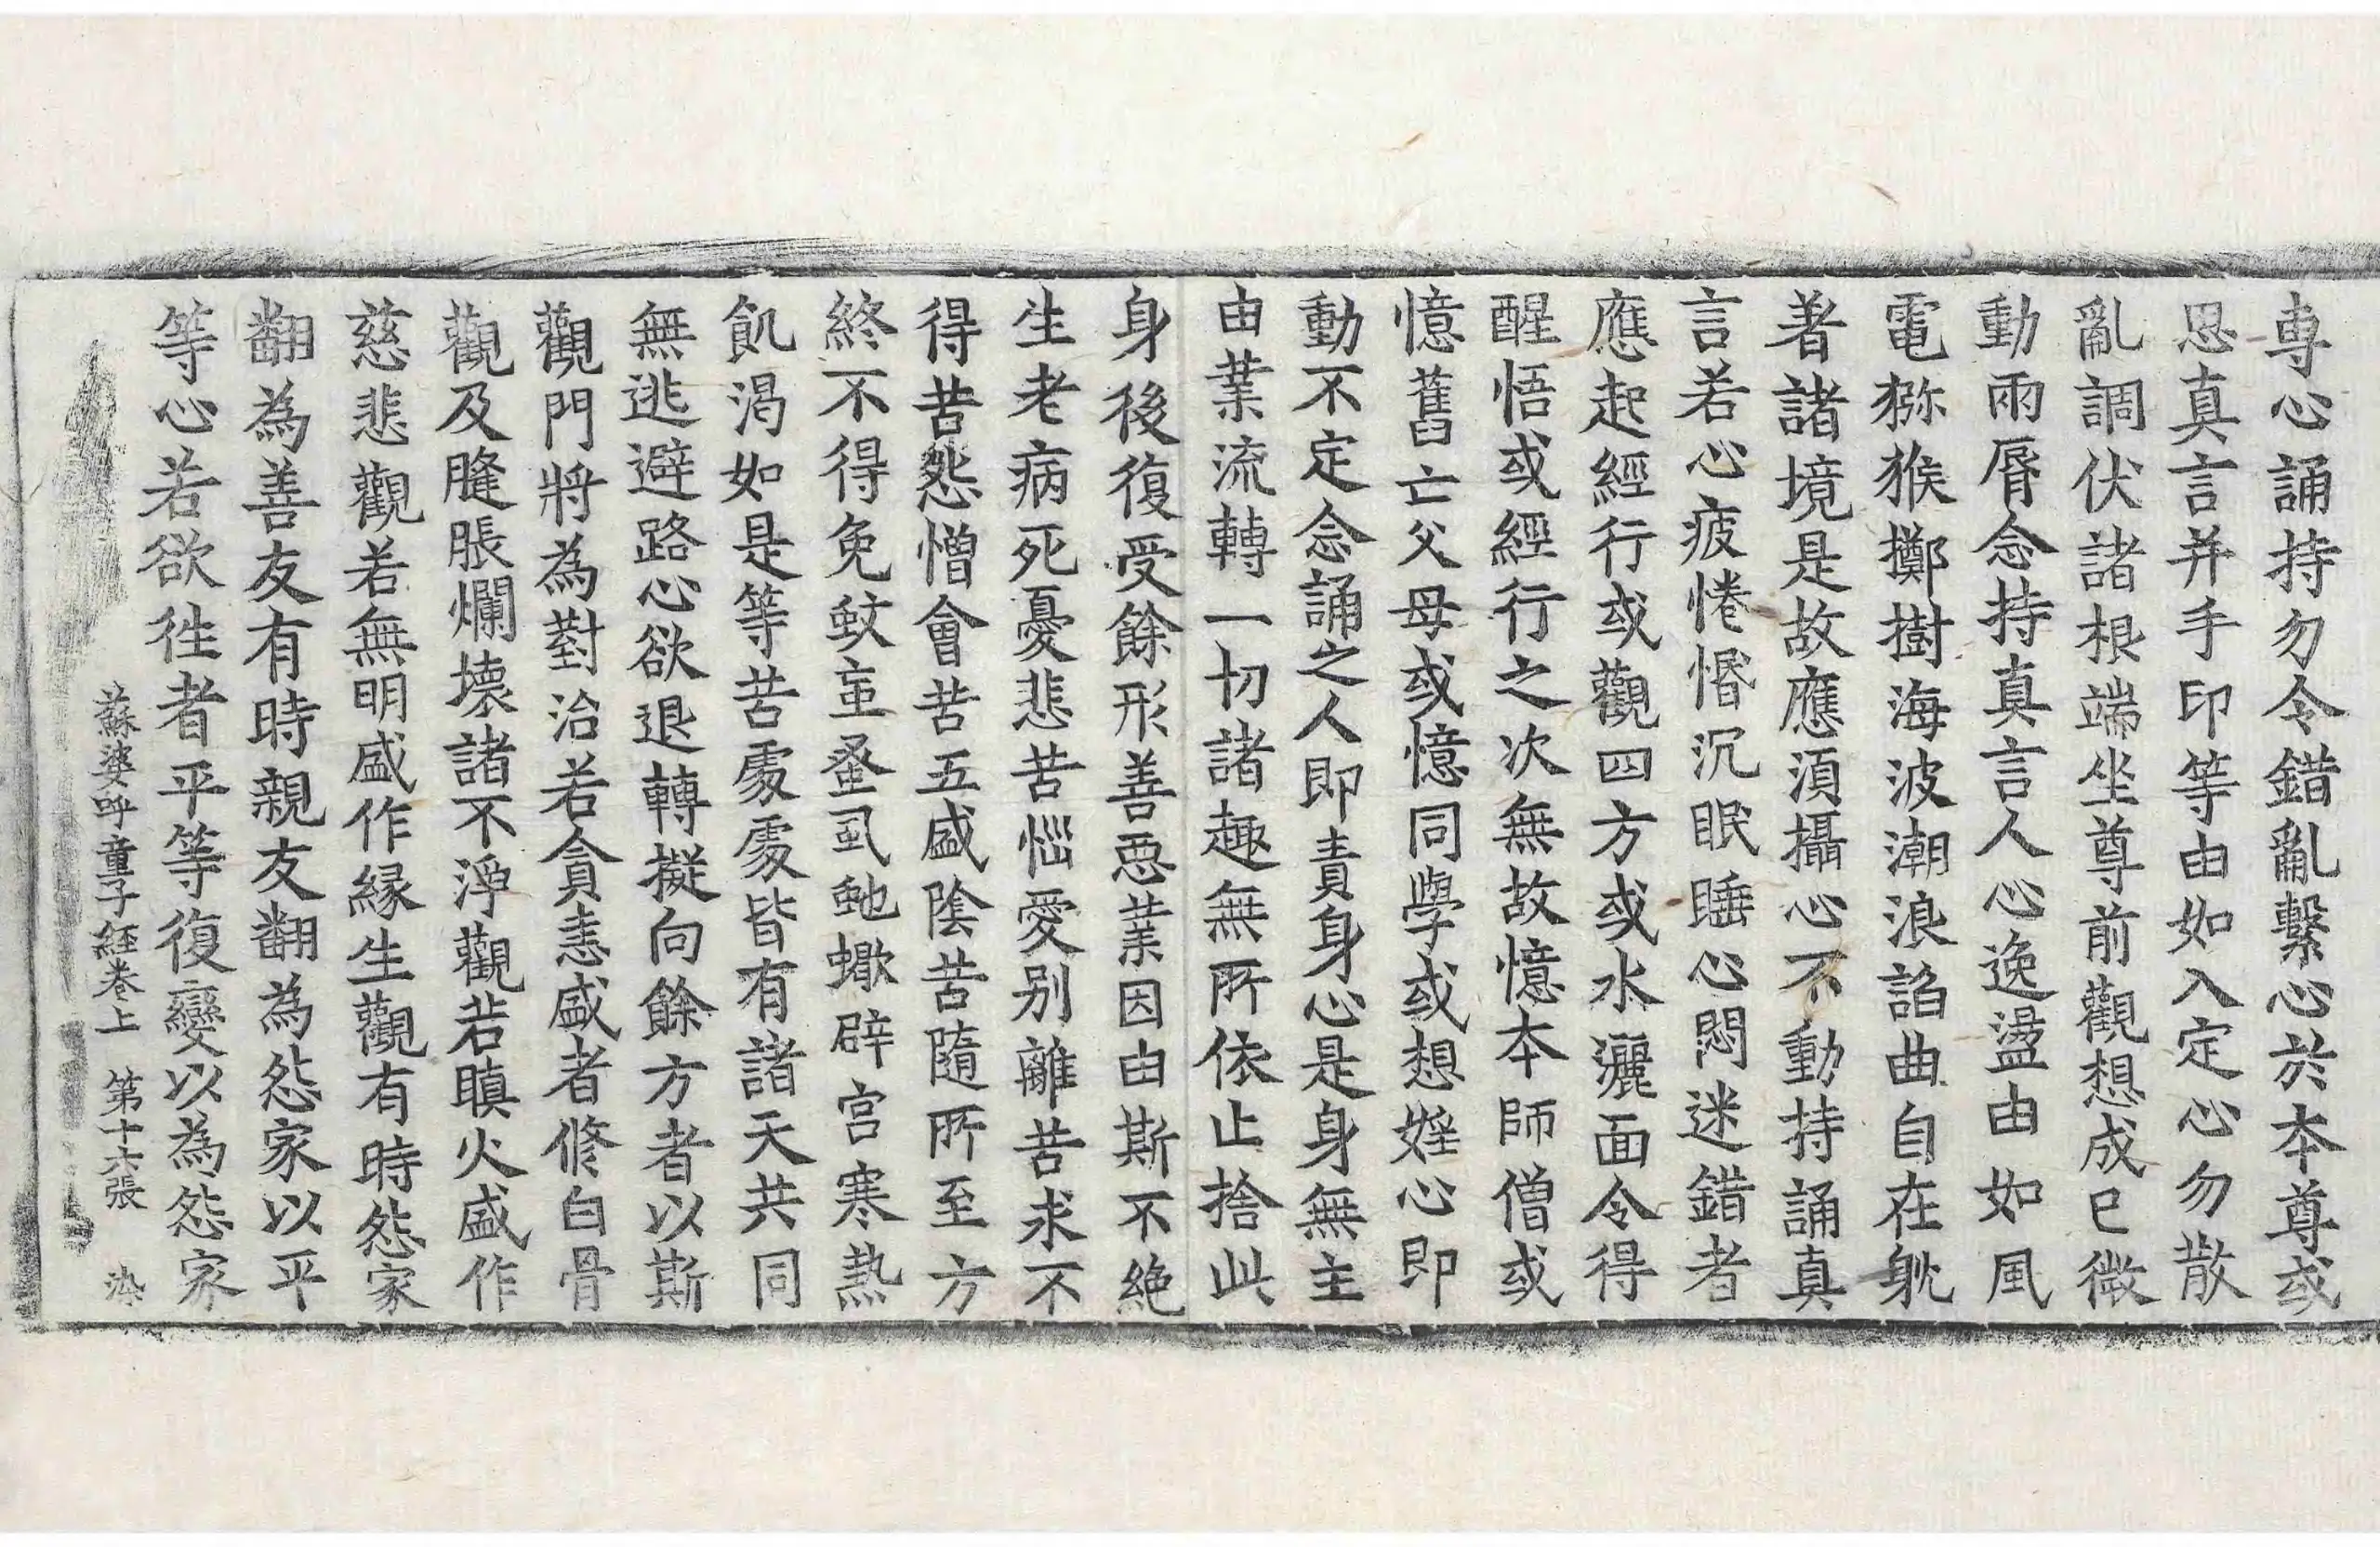 専心誦持勿令錯亂繫心扵本尊或
思真言并手印等由如入定心勿散
亂調伏諸根端坐尊前觀想成已微
動兩脣念持真言人心逸盪由如風
電猕猴擲樹海波潮浪諂曲自在躭
著諸境是故應湏攝心不動持誦真
言若心疲惓惛沉眠睡心悶迷錯者
應起經行或觀四方或水灑面令得
醒悟或經行之次無故憶本師僧或
憶舊亡父母或憶同學或想婬心即
動不定念誦之人即責身心是身無主
由業流轉一切諸趣無所依止捨此
身後復受餘形善惡業因由斯不絶
生老病死憂悲苦惱愛别離苦求不
得苦怨憎會苦五盛陰苦隨所至方
終不得免蚊䖟蚤虱虵蠍辟宫寒熱
飢渴如是等苦處處皆有諸天共同
無逃避路心欲退轉擬向餘方者以斯
觀門將為對治若貪恚盛者修白骨
觀及膖脹爛壞諸不淨觀若瞋火盛作
慈悲觀若無明盛作縁生觀有時怨家
翻為善友有時親友翻為怨家以平
等心若欲徃者平等復變以為怨家
蘇婆呼童子經卷上 第十六張 染